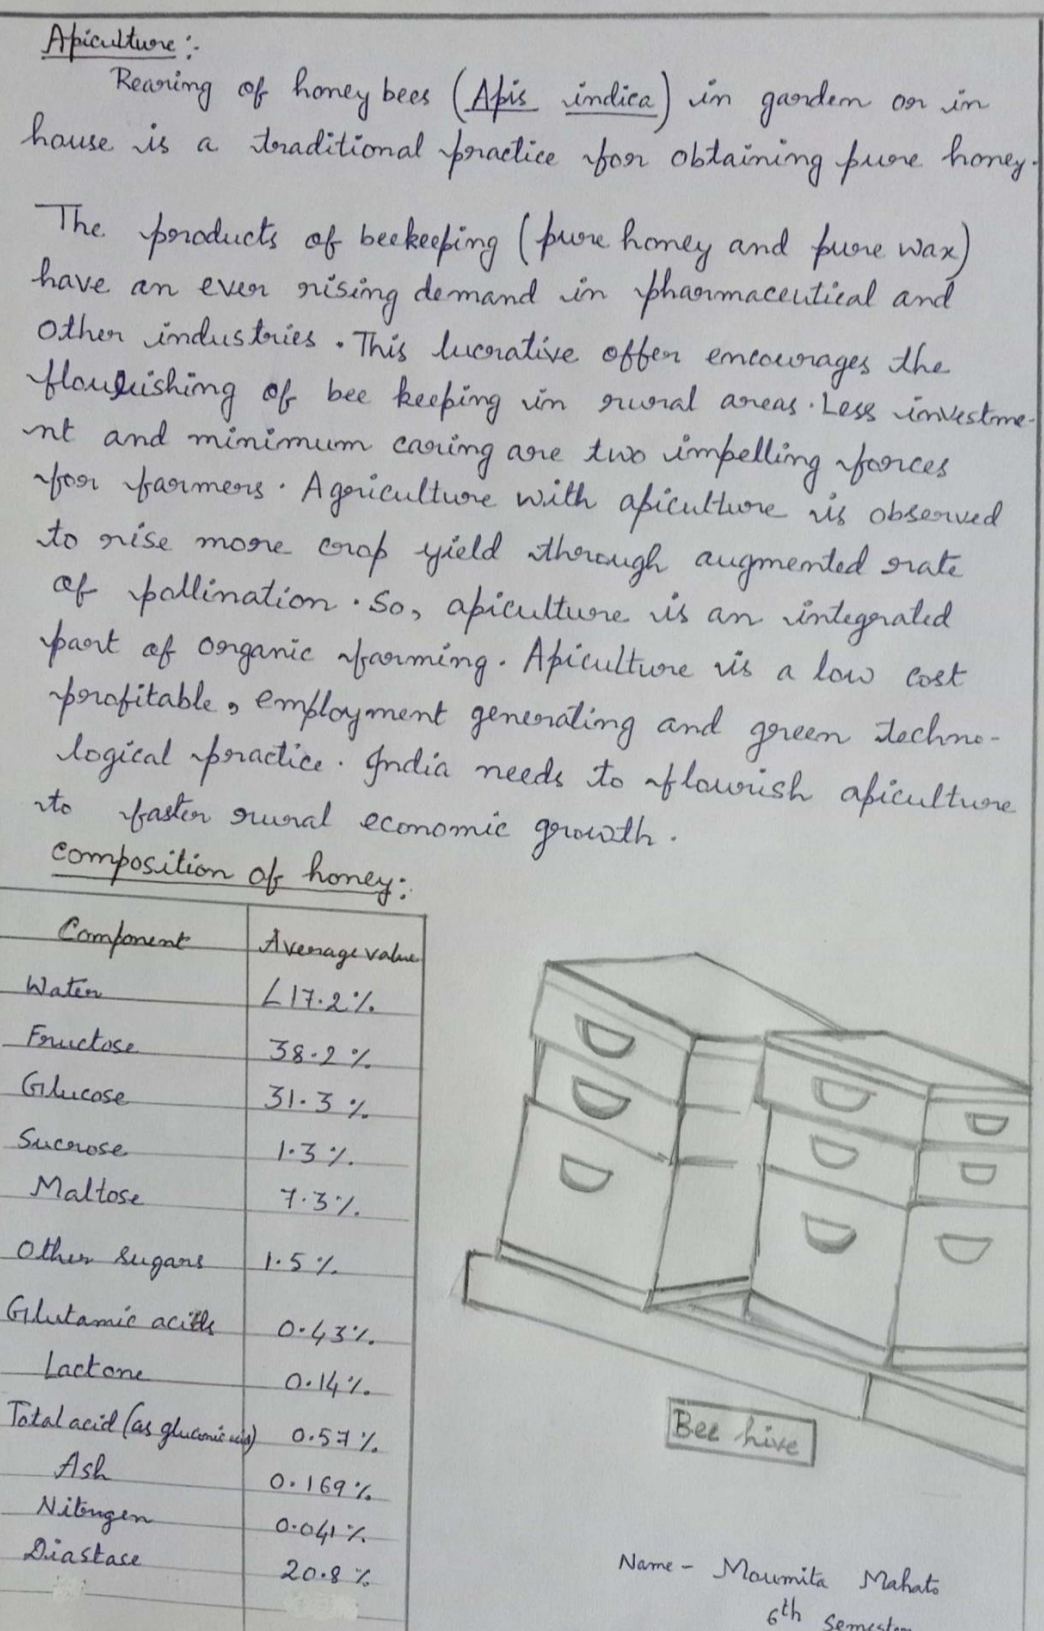 Apiculture:-
Rearing of honey bees (Apis indica) in garden or in
house is a traditional practice for obtaining pure honey.
The products of beekeeping (pure honey and pure wax)
have an ever rising demand in pharmaceutical and
other industries. This lucrative offer encourages the
flourishing of bee keeping in rural areas. Less investme-
nt and minimum caring are two impelling forces
for farmers. Agriculture with apiculture is observed
to rise more crop yield through augmented rate
of pollination. So, apiculture is an integrated
part of organic farming. Apiculture is a low cost
profitable, employment generating and green techno-
logical practice. India needs to flourish apiculture
to faster rural economic growth.
Composition of honey:-
Component Average value
Water ∠17.2%
Fructose 38.2%
Glucose 31.3%
Sucrose 1.3%
Maltose 7.3%
Other sugars 1.5%
Glutamic acids 0.43%
Lactone 0.14%
Total acid (as gluconic acid) 0.57%
Ash 0.169%
Nitrogen 0.041%
Diastase 20.8%
Bee hive
Name - Moumita Mahato
6th Semester